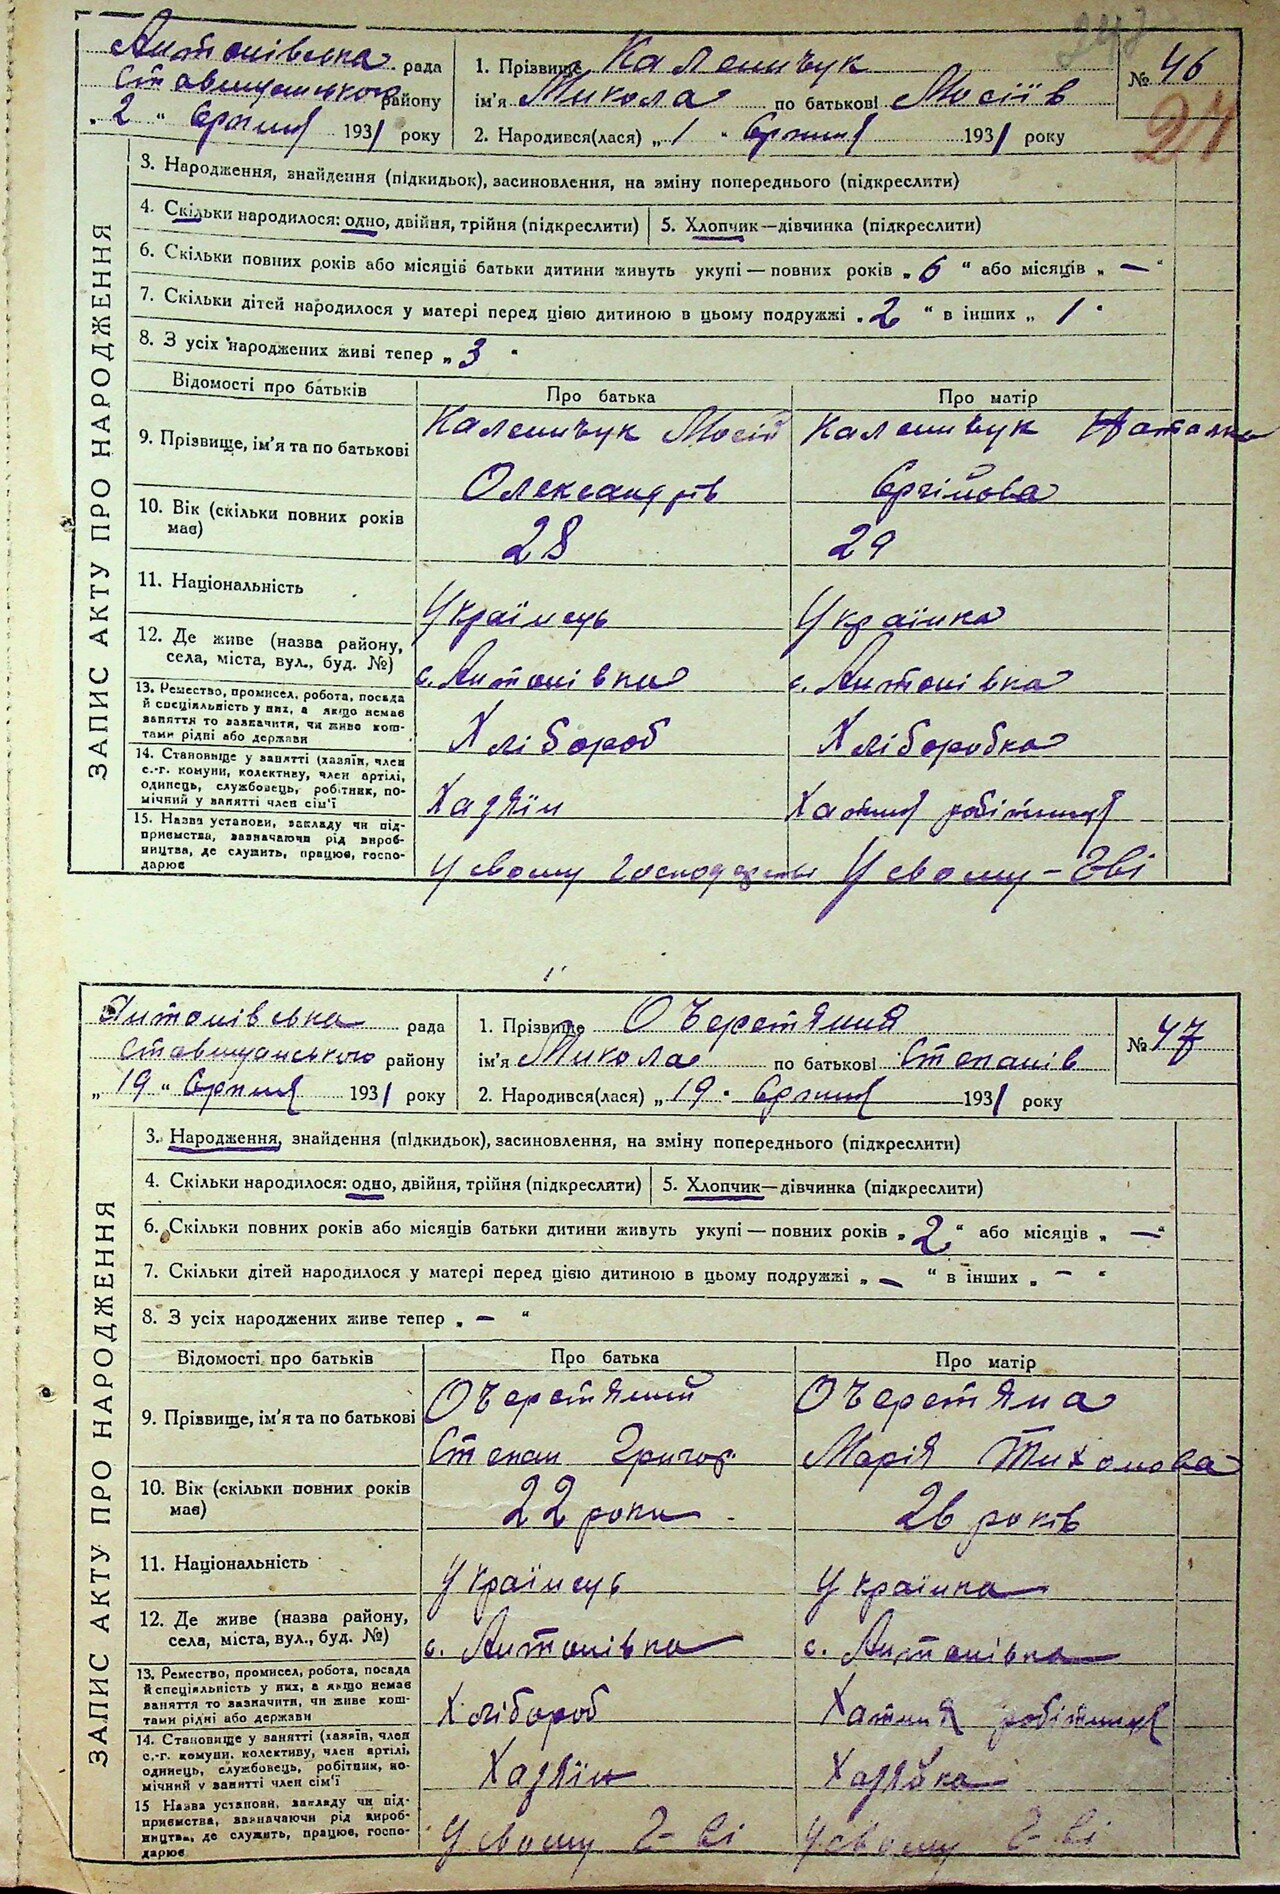 Антонівська рада
Ставищанського району
„ 2 “ Серпня 1931 року
1. Прізвище Каленичук
ім'я Микола по батькові Мосіїв
2. Народився(лася) „ 1 “ Серпня 1931 року
№ 46
24
ЗАПИС АКТУ ПРО НАРОДЖЕННЯ
3. Народження, знайдення (підкидьок), засиновлення, на зміну попереднього (підкреслити)
4. Скільки народилося: одно, двійня, трійня (підкреслити) 5. Хлопчик—дівчинка (підкреслити)
6. Скільки повних років або місяців батьки дитини живуть укупі — повних років „ 6 “ або місяців „ — “
7. Скільки дітей народилося у матері перед цією дитиною в цьому подружжі „ 2 “ в інших „ 1 “
8. З усіх народжених живі тепер „ 3 “
Відомості про батьків Про батька Про матір
9. Прізвище, ім'я та по батькові Каленичук Мосій Каленичук Наталка
Олександрів Єргійова
10. Вік (скільки повних років має) 28 29
11. Національність Українець Українка
12. Де живе (назва району, села, міста, вул., буд. №) с. Антонівка с. Антонівка
13. Ремество, промисел, робота, посада
й спеціяльність у них, а якщо немає
заняття то зазначити, чи живе кош-
тами рідні або держави
Хлібороб Хліборобка
14. Становище у занятті (хазяїн, член
с.-г. комуни, колективу, член артілі,
одинець, службовець, робітник, по-
мічний у занятті член сім'ї
Хазяїн Хатня робітниця
15. Назва установи, закладу чи під-
приємства, зазначаючи рід вироб-
ництва, де служить, працює, госпо-
дарює
У свому господарстві У свому - Г-ві
Антонівська рада
Ставищанського району
„ 19 “ Серпня 1931 року
1. Прізвище Очеретяний
ім'я Микола по батькові Степанів
2. Народився(лася) „ 19 “ Серпня 1931 року
№ 47
ЗАПИС АКТУ ПРО НАРОДЖЕННЯ
3. Народження, знайдення (підкидьок), засиновлення, на зміну попереднього (підкреслити)
4. Скільки народилося: одно, двійня, трійня (підкреслити) 5. Хлопчик—дівчинка (підкреслити)
6. Скільки повних років або місяців батьки дитини живуть укупі — повних років „ 2 “ або місяців „ — “
7. Скільки дітей народилося у матері перед цією дитиною в цьому подружжі „ — “ в інших „ — “
8. З усіх народжених живе тепер „ — “
Відомості про батьків Про батька Про матір
9. Прізвище, ім'я та по батькові Очеретяний Очеретяна
Степан Григор. Марія Тихонова
10. Вік (скільки повних років має) 22 роки 26 років
11. Національність Українець Українка
12. Де живе (назва району, села, міста, вул., буд. №) с. Антонівка с. Антонівка
13. Ремество, промисел, робота, посада
й спеціяльність у них, а якщо немає
заняття то зазначити, чи живе кош-
тами рідні або держави
Хлібороб Хатня робітниця
14. Становище у занятті (хазяїн, член
с.-г. комуни, колективу, член артілі,
одинець, службовець, робітник, по-
мічний у занятті член сім'ї
Хазяїн Хазяйка
15 Назва установи, закладу чи під-
приємства, зазначаючи рід вироб-
ництва, де служить, працює, госпо-
дарює
У свому Г-ві У свому Г-ві